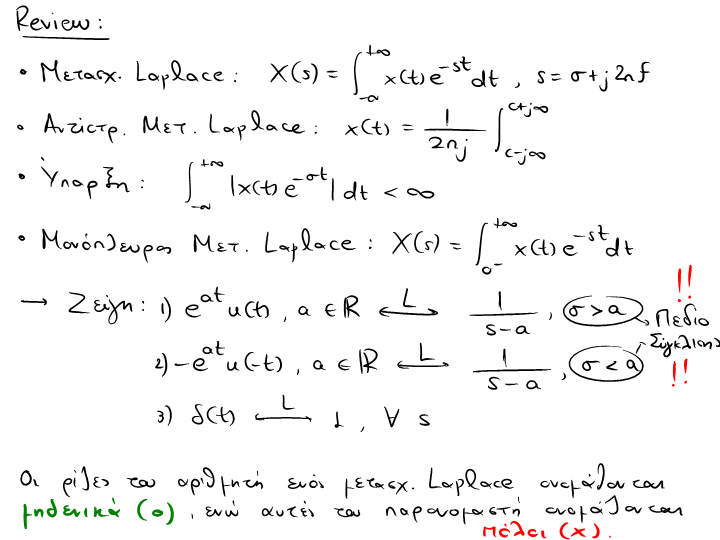 Review:
• Μετασχ. Laplace: X(s) = ∫_{-∞}^{+∞} x(t) e^{-st} dt , s = σ + j2πf
• Αντίστρ. Μετ. Laplace: x(t) = 1/(2πj) ∫_{c-j∞}^{c+j∞}
• Ύπαρξη: ∫_{-∞}^{+∞} |x(t) e^{-σt}| dt < ∞
• Μονόπλευρος Μετ. Laplace: X(s) = ∫_{0^-}^{+∞} x(t) e^{-st} dt
!!
→ Ζεύγη: 1) e^{at} u(t), a ∈ ℝ ⟷^{L} 1/(s-a), σ > a → Πεδίο
Σύγκλισης
2) -e^{at} u(-t), a ∈ ℝ ⟷^{L} 1/(s-a), σ < a
!!
3) δ(t) ⟷^{L} 1, ∀ s
Οι ρίζες του αριθμητή ενός μετασχ. Laplace ονομάζονται
μηδενικά (o), ενώ αυτές του παρονομαστή ονομάζονται
πόλοι (x).